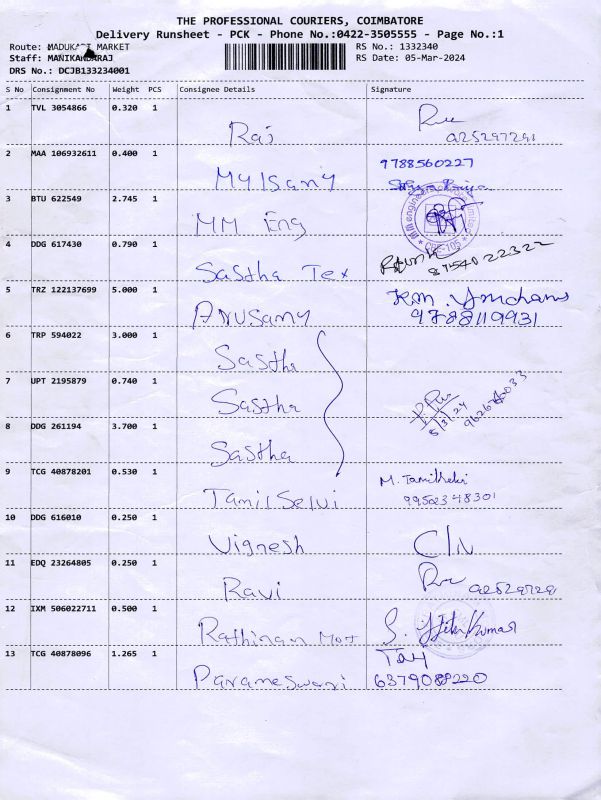 THE PROFESSIONAL COURIERS, COIMBATORE
Delivery Runsheet - PCK - Phone No.:0422-3505555 - Page No.:1
Route: MADUKARI MARKET
RS No.: 1332340
Staff: MANIKANDARAJ
RS Date: 05-Mar-2024
DRS No.: DCJB133234001
S No Consignment No Weight PCS Consignee Details Signature
1 TVL 3054866 0.320 1
Raj
2 MAA 106932611 0.400 1 9788560227
Mylsamy
3 BTU 622549 2.745 1
MM Eng
4 DDG 617430 0.790 1
Sastha Tex 8754022322
5 TRZ 122137699 5.000 1
Arusamy 9788119931
6 TRP 594022 3.000 1
Sastha
7 UPT 2195879 0.740 1
Sastha 5/3/24
8 DDG 261194 3.700 1
Sastha
9 TCG 40878201 0.530 1 M. Tamilselvi
Tamilselvi 9950348301
10 DDG 616010 0.250 1
Vignesh
11 EDQ 23264805 0.250 1
Ravi
12 IXM 506022711 0.500 1
Rathinan Mot S. Kumar
13 TCG 40878096 1.265 1
Parameswari 6379088220